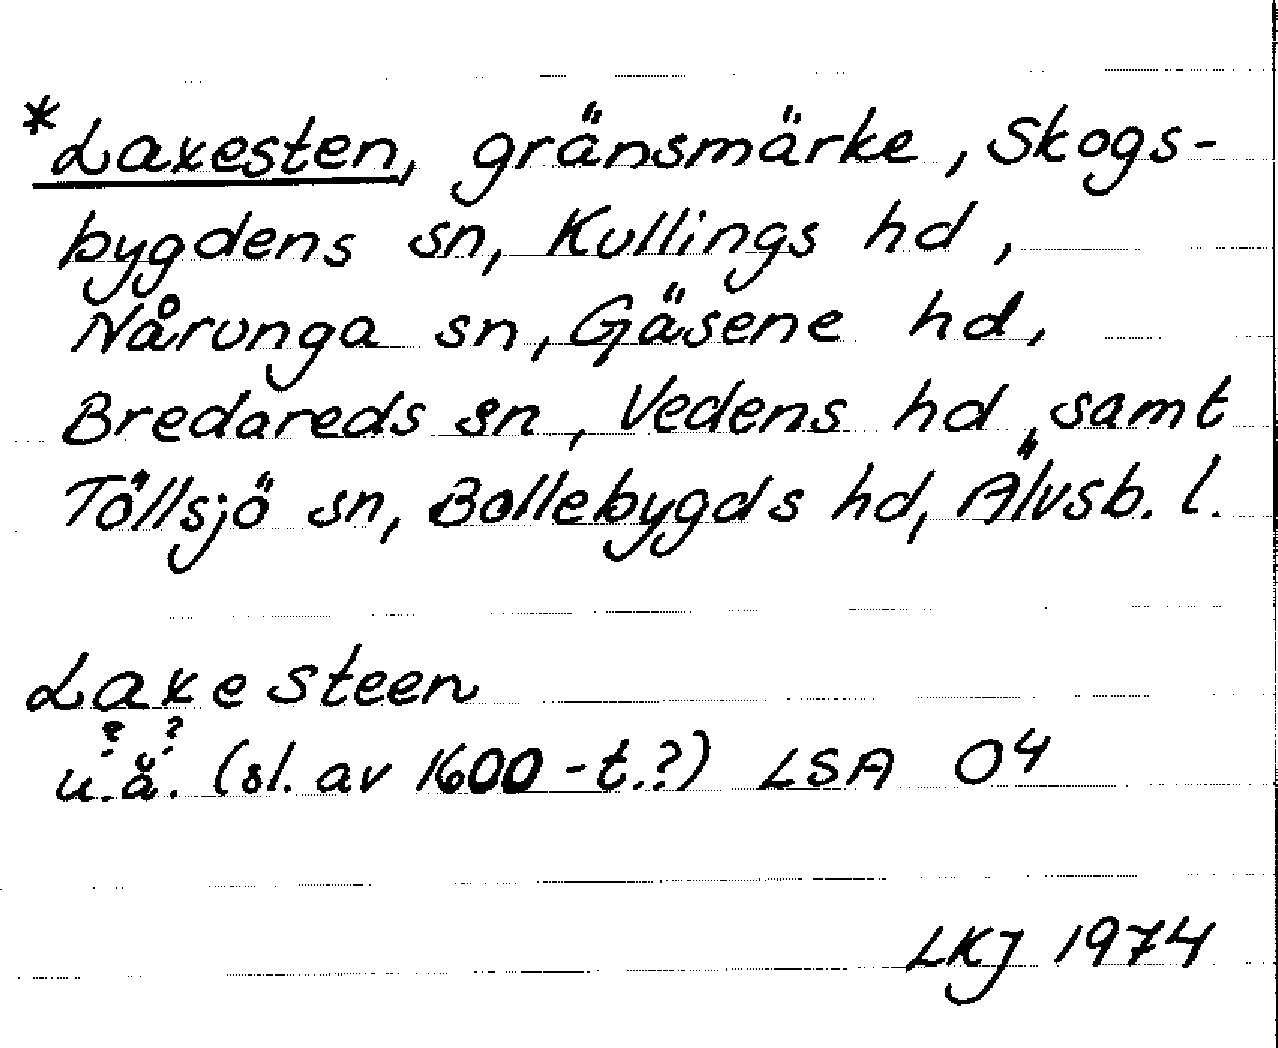 *Laxesten, gränsmärke, Skogs-
bygdens sn, Kullings hd,
Nårunga sn, Gäsene hd,
Bredareds sn, Vedens hd, samt
Töllsjö sn, Bollebygds hd, Älvsb. l.
Laxe Steen
? ?
u.å. (sl. av 1600-t.?) LSA O4
LKJ 1974